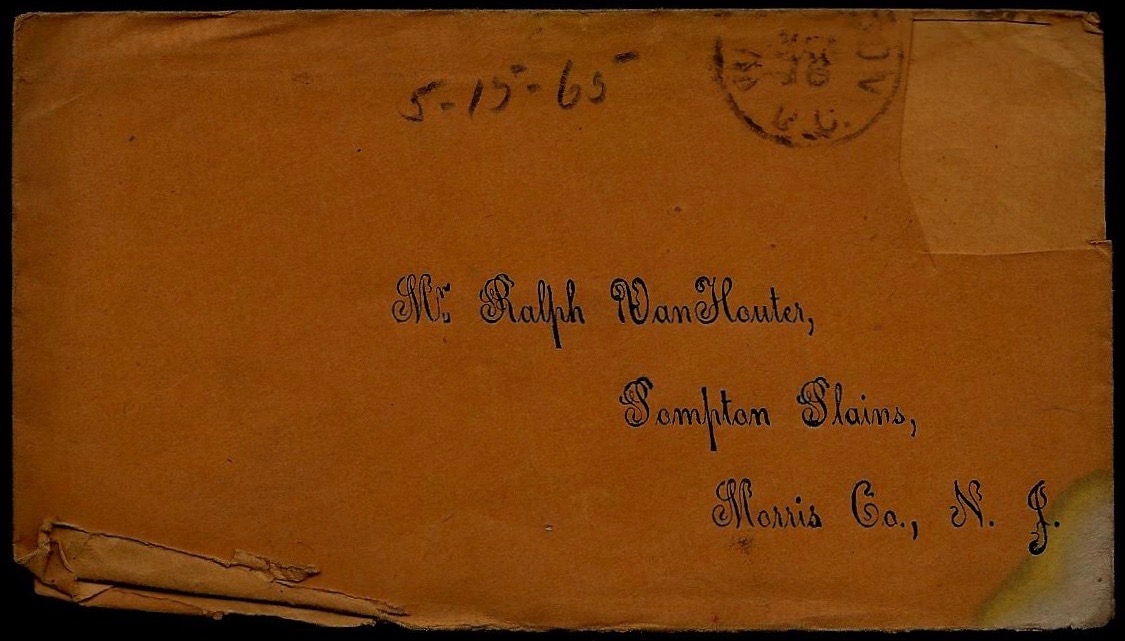 5-15-65
Mr. Ralph VanHouter,
Pompton Plains,
Morris Co., N. J.